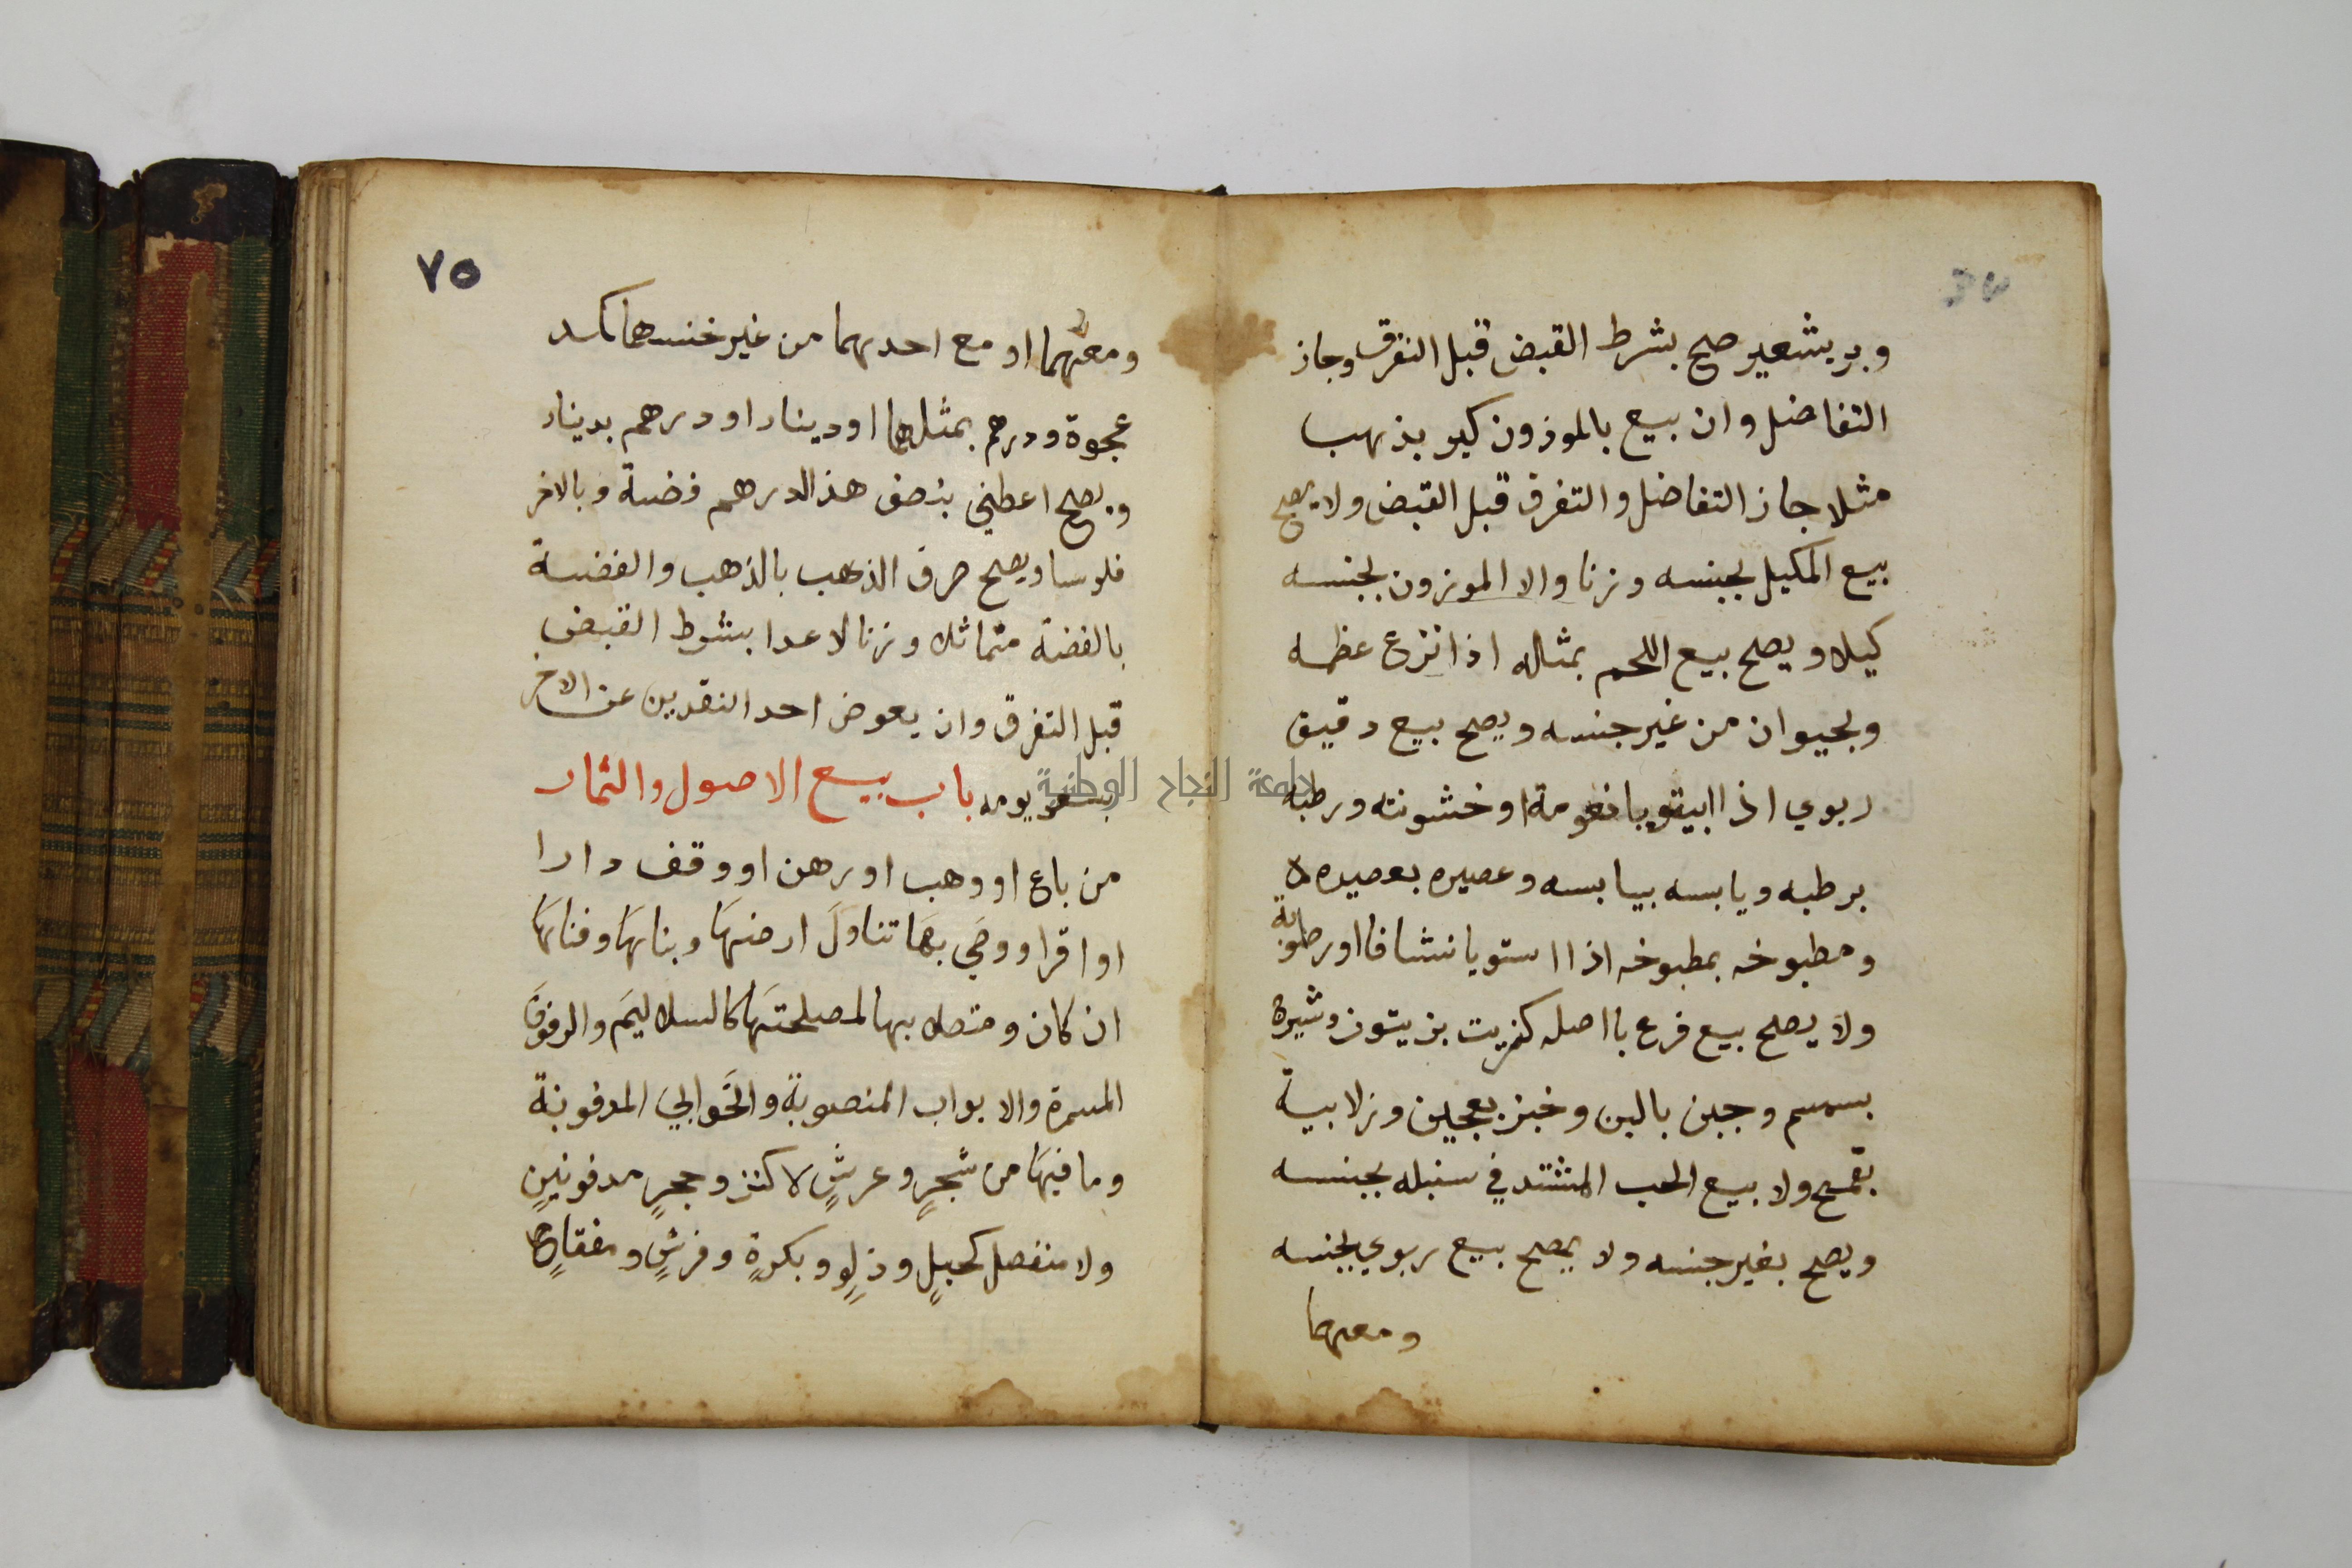 وبر بشعير صح بشرط القبض قبل التفرق وجاز
التفاضل وان بيع بالموزون كبر بذهب
مثلا جاز التفاضل والتفرق قبل القبض ولا يصح
بيع المكيل بجنسه وزنا والا الموزون بجنسه
كيلا ويصح بيع اللحم بمثله اذا نزع عظمه
وبحيوان من غير جنسه ويصح بيع دقيق
ربوي اذا نعومة او خشونته ورطبه
برطبه ويابسه بيابسه وعصيره بعصيره
ومطبوخه بمطبوخه اذا استويا نشافا او رطوبة
ولا يصح بيع فرع باصله كزيت بزيتون وشيرة
بسمسم وجبن بالبن وخبز بعجين وزلابية
بقمح ولا بيع الحب المشتد في سنبله بجنسه
ويصح بغير جنسه ولا يصح بيع ربوي بجنسه
ومعهما
٧٥
ومعهما او مع احدهما من غير جنسهما كمد
عجوة ودرهم بمثلهما او دينار او درهم بدينار
ويصح اعطني بنصف هذ الدرهم فضة وبالاخر
فلوسا ويصح صرف الذهب بالذهب والفضة
بالفضة متماثلا وزنا لا عدا بشرط القبض
قبل التفرق وان يعوض احد النقدين عن الاخر
بسعر يومه باب بيع الاصول والثمار
من باع او وهب او رهن او وقف دارا
او اقر او وصَى بهَا تناولَ ارضهَا وبنائهَا وفنائهَا
ان كان ومتصلا بها لمصلحتهَا كالسلاليَم والرفوفَ
المسمرة والابواب المنصوبة والخَوابيَ المدفونة
وما فيهَا من شجرٍ وعرشٍ لا كنز وحجرٍ مدفونينٍ
ولا منفصل كحبلٍ ودلوٍ وبكرةٍ وفرشٍ ومفتاحٍ
جامعة النجاح الوطنية